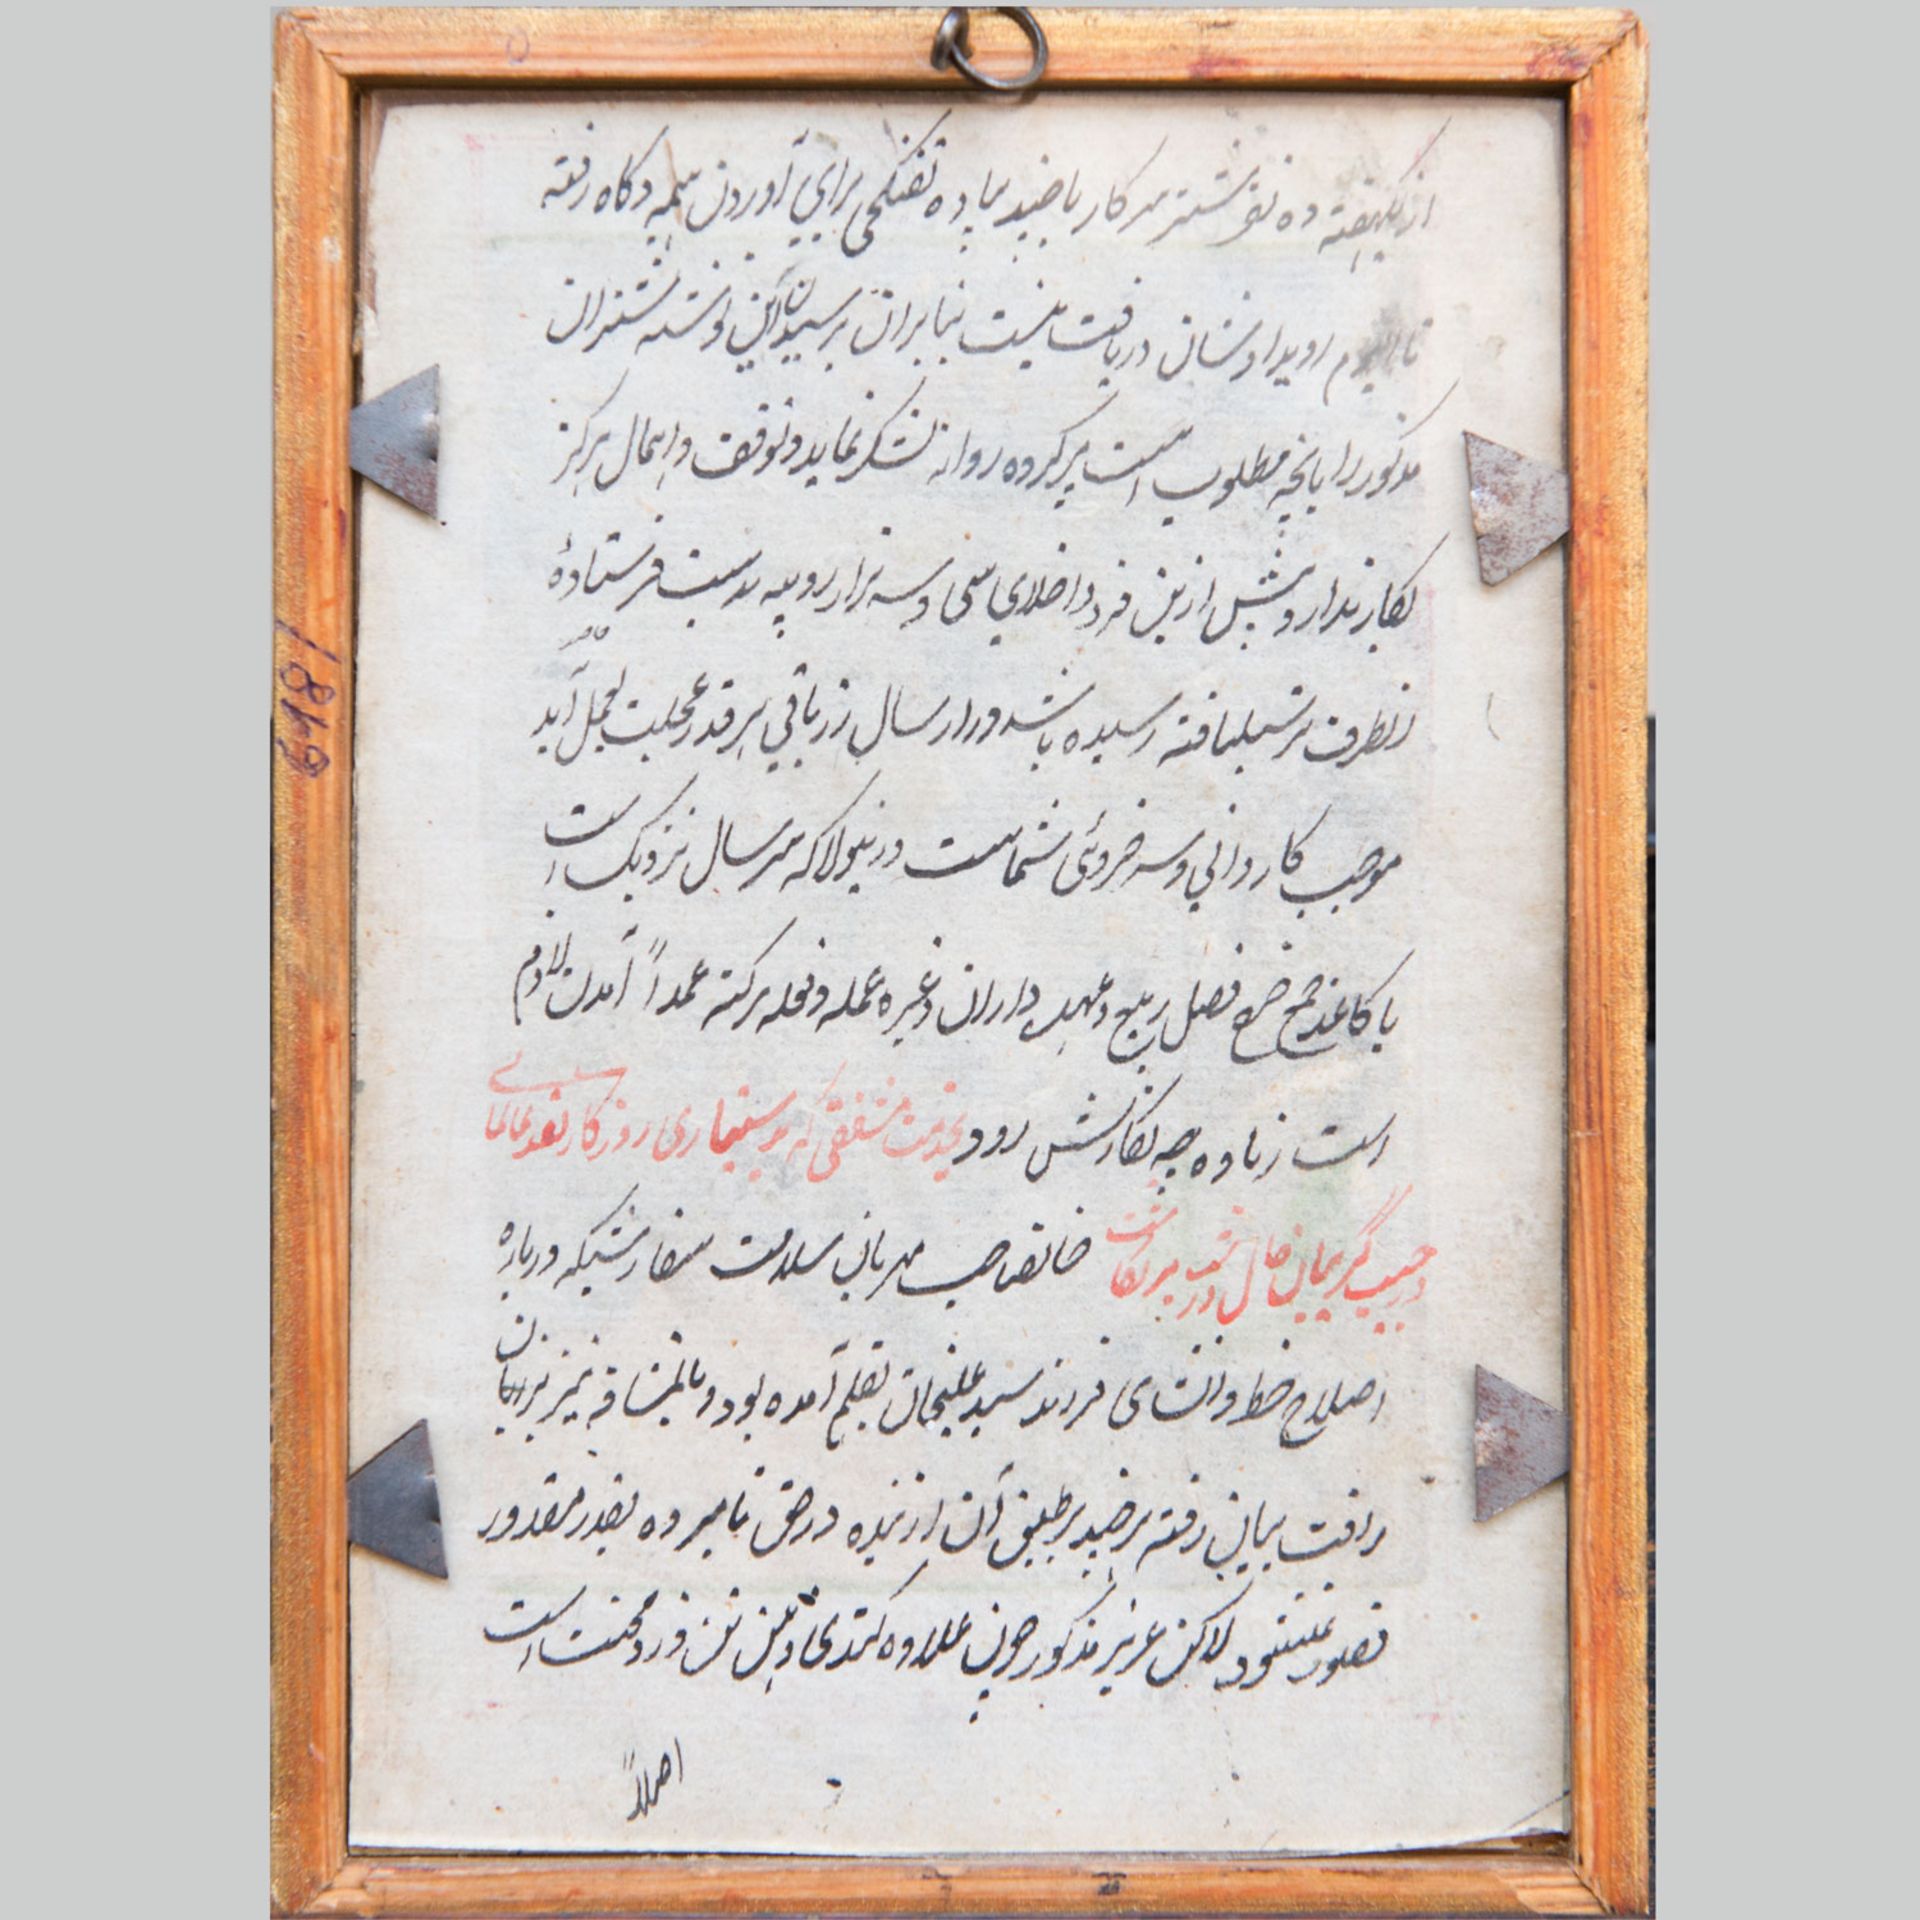 از یکهفته ده نفر شتر سرکار با چند پیاده تفنگچی برای آوردن هیمه و کاه رفته
تا الیوم رویداد شان دریافت نیست بنابران برسیدن این نوشته شتران
مذکور را بانچه مطلوب است پر کرده روانه لشکر نماید و توقف و اهمال هرگز
بکار ندارد و پیش ازین فرد داخلای سی و سه هزار روپیه بدست فرستادهٔ
انطرف ترسیلیافته رسیده باشد در ارسال زر باقی هر قدر عجلت بعمل آید
موجب کاردانی و سرخروئی شماست درینولا که سر سال نزدیک است
با کاغذ جمع خرچ فصل ربیع و عهده داران و غیره عمله و فعله پرگنه عمداً آمدن لازم
است زیاده چه نگارش رود بخدمت مشفقی که بر سفارش روزگار
در جیب گریبان خان صاحب مهربان سلامت سفارشیکه درباره
اصلاح خط و انشای فرزند سید علیخان بقلم آمده بود و بالمشافه نیز بزبان
رافت بیان رفته هر چند بر طبق آن از بنده در حق نامبرده بقدر مقدور
قصور نمیشود لاکن عزیز مذکور چون علاوه کندی ذهن
اصلاً
6481